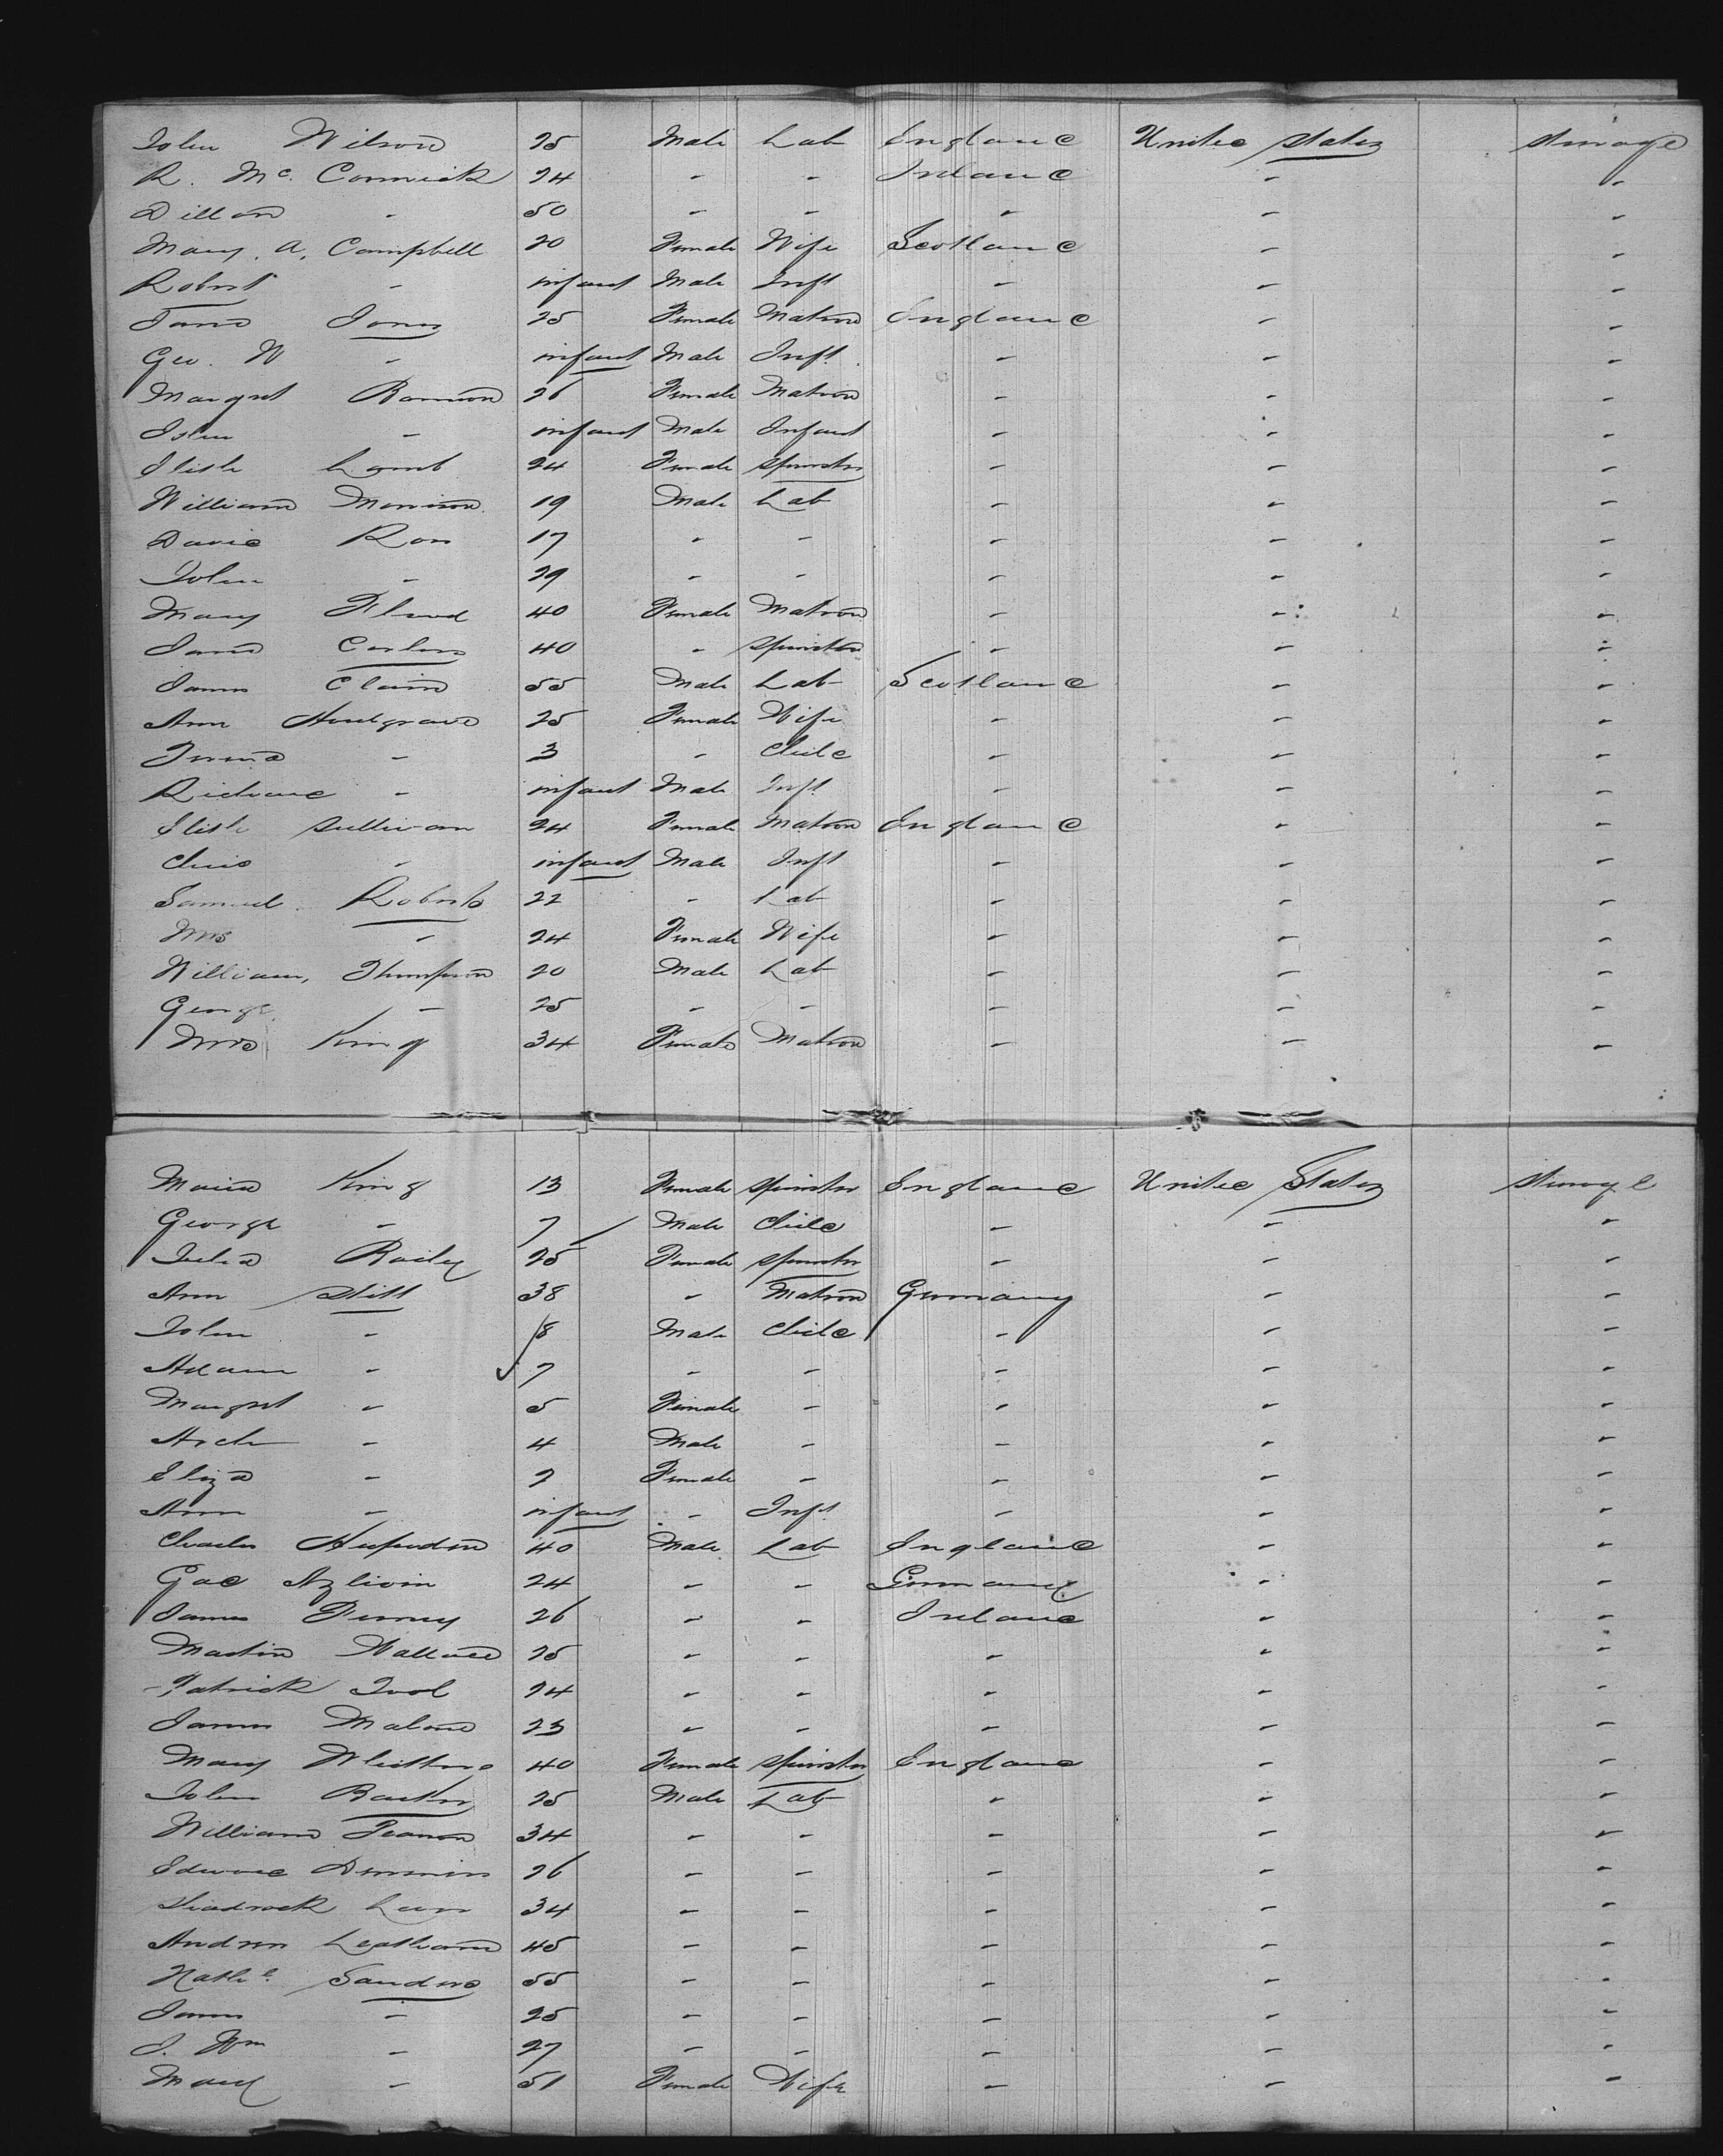 John Wilson 25 Male Lab England United States Steerage
R. Mc. Cormick 24 - - Ireland - -
Dillon - 50 - - - - -
Mary. A. Campbell 20 Female Wife Scotland - -
Robert - infant Male Inft - - -
Jane Jones 25 Female Matron England - -
Geo. W - infant Male Inft. - - -
Margret 26 Female Matron - - -
John - infant Male Infant - - -
Elisth Lamb 24 Female Spinster - - -
William Morrison 19 Male Lab - - -
David Ross 17 - - - - -
John - 29 - - - - -
Mary Flood 40 Female Matron - - -
Jane 40 - Spinster - - -
James Clain 55 Male Lab Scotland - -
Ann 25 Female Wife - - -
- 3 - Child - - -
Richard - infant Male Inft - - -
Elisth Sullivan 24 Female Matron England - -
Chris - infant Male Inft - - -
Samuel Roberts 22 - Lab - - -
Mrs - 24 Female Wife - - -
William, Thompson 20 Male Lab - - -
George - 25 - - - - -
Mrs King 34 Female Matron - - -
Maria King 13 Female Spinster England United States Steerage
George - 7 Male Child - - -
Julia Baily 25 Female Spinster - - -
Ann Stitt 38 - Matron Germany - -
John - 8 Male Child - - -
Adam - 7 - - - - -
Margret - 5 Female - - - -
Arch - 4 Male - - - -
Eliza - 2 Female - - - -
Ann - infant - Inft. - - -
Charles 40 Male Lab England - -
24 - - Germany - -
James 26 - - Ireland - -
Martin Wallace 25 - - - - -
Patrick 24 - - - - -
James Malone 23 - - - - -
Mary 40 Female Spinster England - -
John 25 Male Lab - - -
William 34 - - - - -
Edward 26 - - - - -
Shadrack 34 - - - - -
Andrew Leatham 45 - - - - -
Nathl. Sanders 55 - - - - -
James - 25 - - - - -
J. Wm - 27 - - - - -
Mary - 51 Female Wife - - -